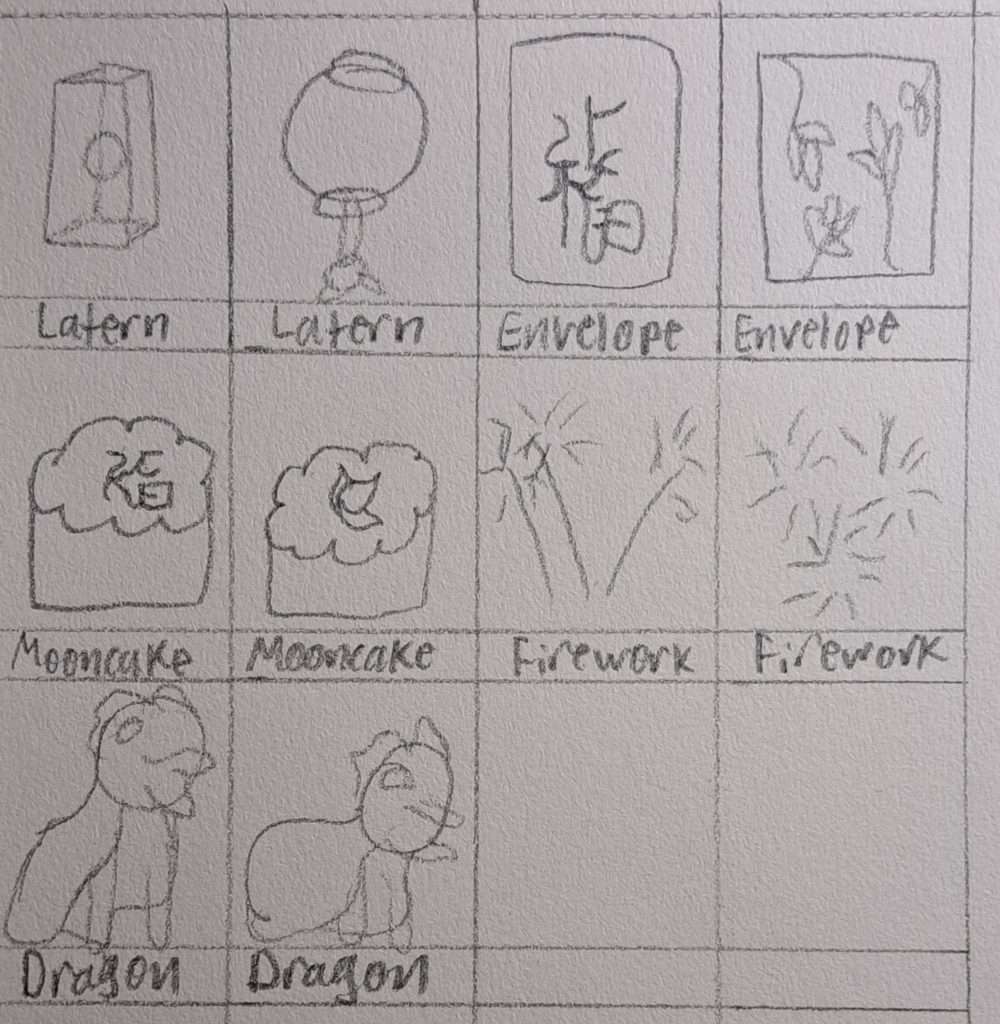 福
Latern Latern Envelope Envelope
福
Mooncake Mooncake Firework Firework
Dragon Dragon